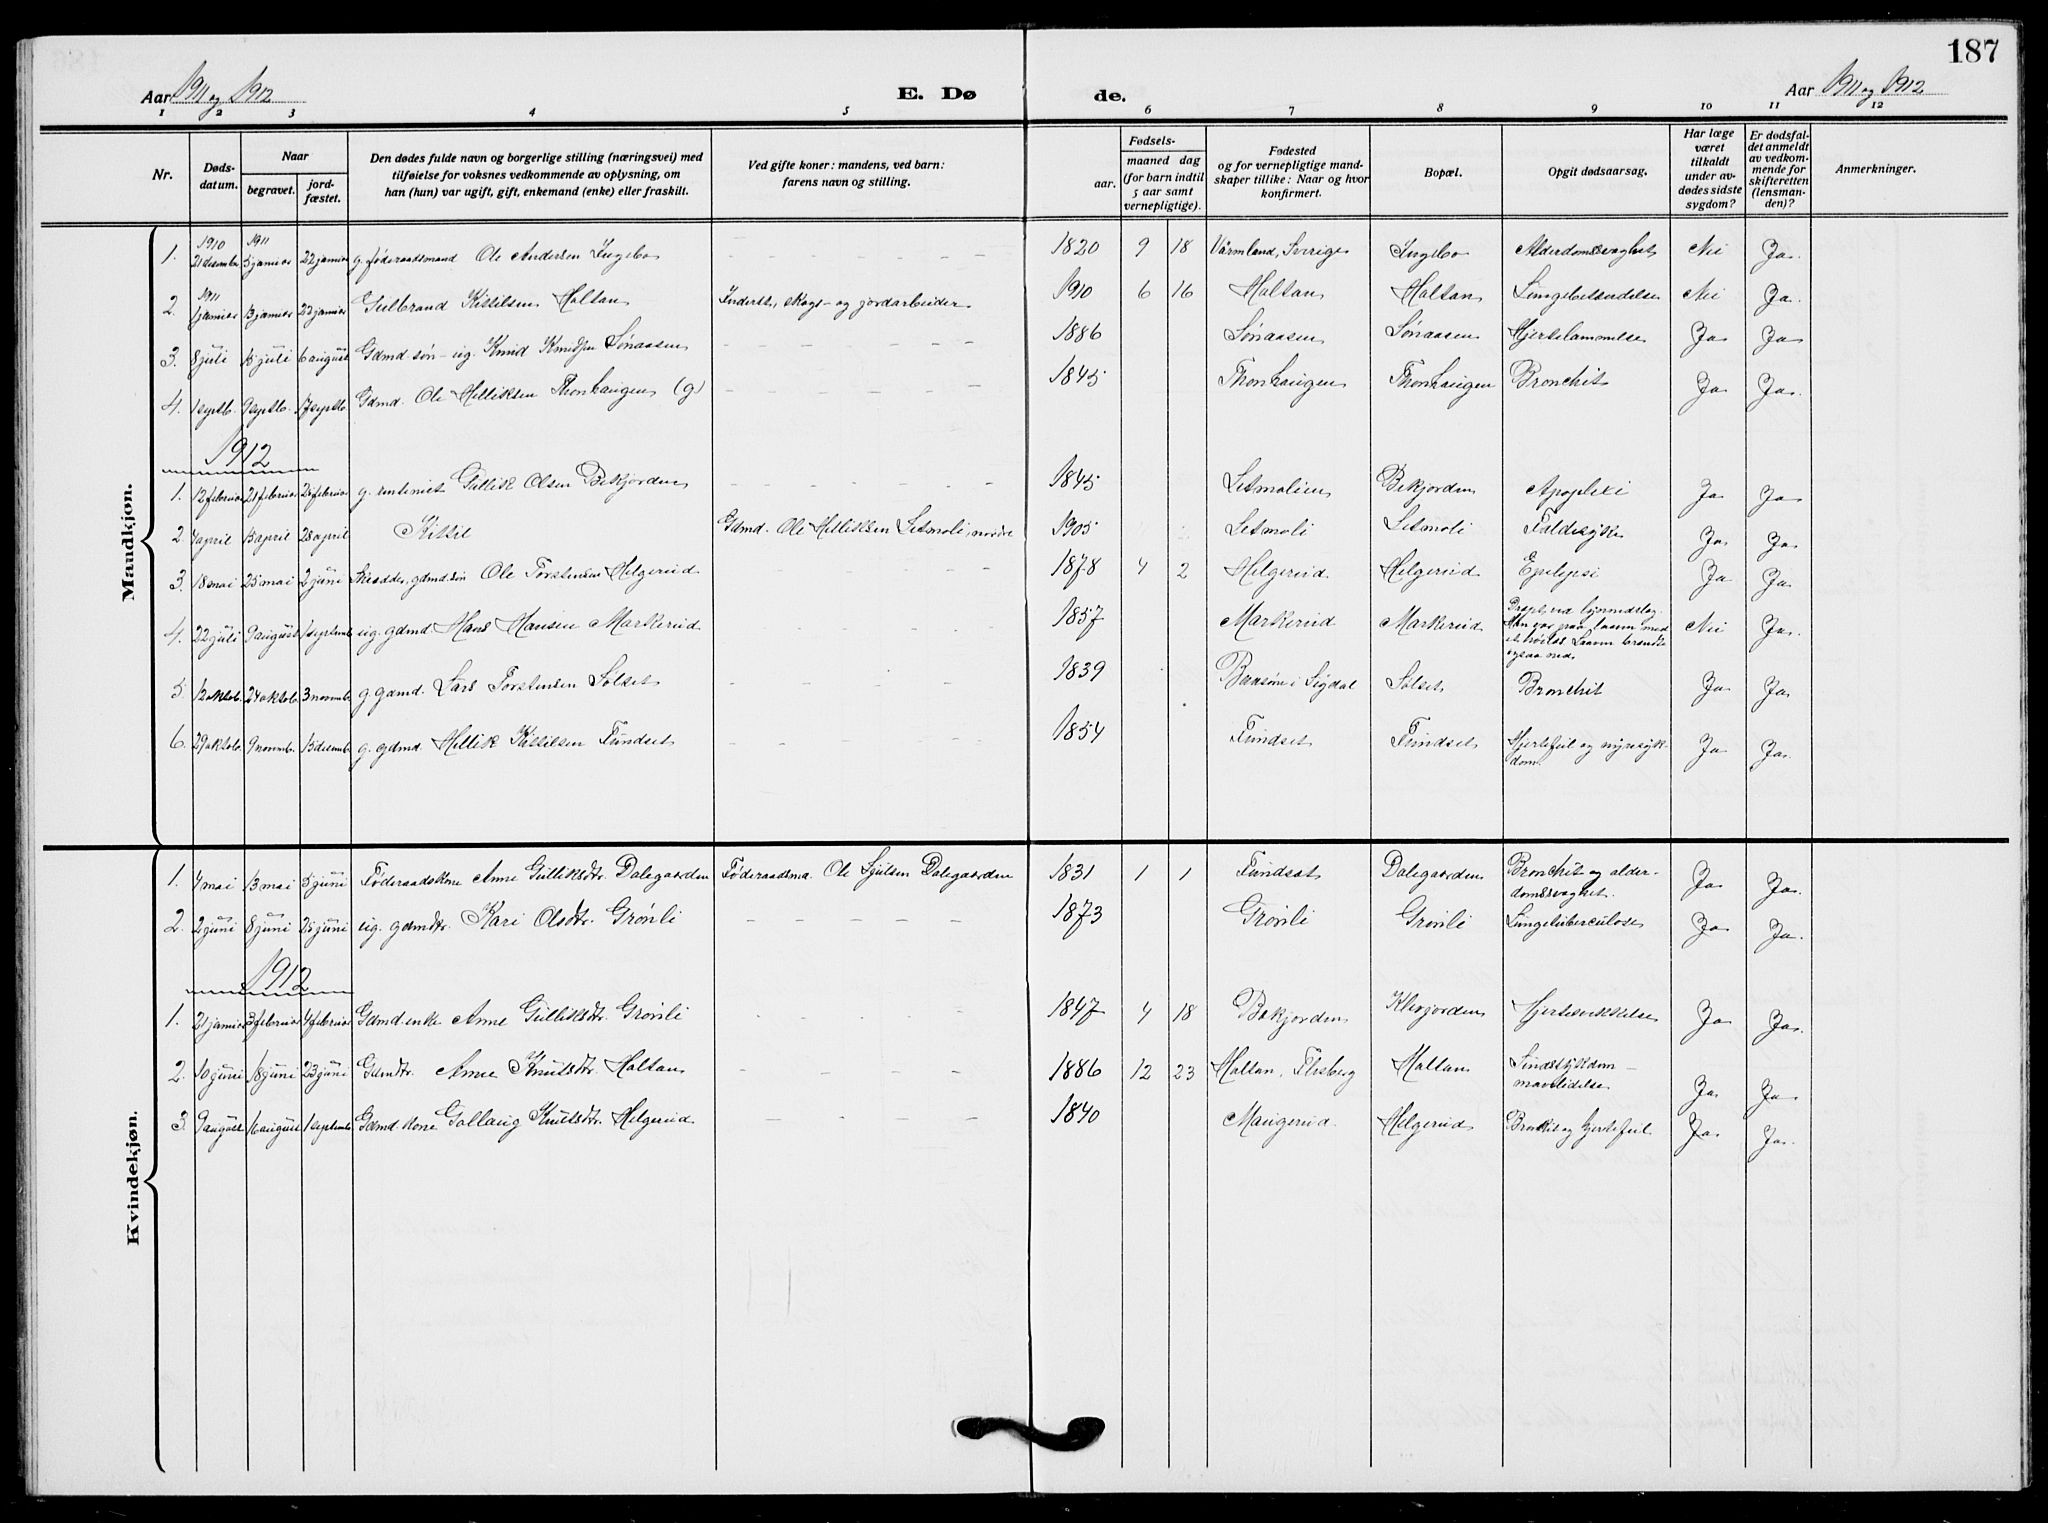 187
Aar 1911 og 1912 E. Dø de. Aar 1911 og 1912
1 2 3 4 5 6 7 8 9 10 11 12
Nr. Døds-datum. Naar begravet. jord-fæstet. Den dødes fulde navn og borgerlige stilling (næringsvei) med tilføielse for voksnes vedkommende av oplysning, om han (hun) var ugift, gift, enkemand (enke) eller fraskilt. Ved gifte koner: mandens, ved barn: farens navn og stilling. Fødsels- aar. maaned dag (for barn indtil 5 aar samt vernepligtige). Fødested og for vernepligtige mand-skaper tillike: Naar og hvor konfirmert. Bopæl. Opgit dødsaarsag. Har læge været tilkaldt under av-dødes sidste sygdom? Er dødsfal-det anmeldt av vedkom-mende for skifteretten (lensman-den)? Anmerkninger.
Mandkjøn.
1910 1911
1. 21 desembr 5 januar 22 januar g. føderaadsmand Ole Andersen Ingebo - - - - - - 1820 9 18 Värmland, Sverige Ingebo Alderdomssvaghet Nei Ja.
1911
2. 1 januar 13 januar 22 januar Gulbrand Kittilsen Haltan Inderst, skogs- og jordarbeider 1910 6 16 Haltan Haltan Lungebetændelse Nei Ja.
3. 8 juli 15 juli 6 august Gdmd. søn - ug. Knud Knudsen Sønaasen - - - - - - 1886 Sønaasen Sønaasen Hjertelammelse Ja Ja
4. 1 septb. 9 septb. 17 septb. Gdmd. Ole Helliksen Thonhaugen (g) - - - - - - 1845 Thonhaugen Thonhaugen Bronchit Ja Ja.
1912
1. 12 februar 21 februar 25 februar g. rentenist Gullik Olsen Bekjorden - - - - - - 1845 Setmolien Bekjorden Apoplexi Ja Ja
2 4 april 13 april 28 april Kittil Gdmd. Ole Helliksen Setmoli, nordre 1905 Setmoli Setmoli Faldesyke Ja Ja
3. 18 mai 25 mai 2 juni Skrædder, gdmd.søn Ole Torstensen Helgerud - - - - - - 1878 4 2 Helgerud Helgerud Epilepsi Ja Ja
4. 22 juli 9 august 1 septemb. ug. gdmd Hans Hansen Markerud - - - - 1857 Markerud Markerud Dræpt ved lynnedslag. Han var paa laaven med et høilas. Laaven brændte ogsaa ned. Nei Ja.
5. 12 oktob. 24 oktob. 3 novmb. g. gdmd. Lars Torstensen Solset - - - - 1839 i Sigdal Solset Bronchit Ja Ja
6. 29 oktob. 9 novmb. 15 desemb. g. gdmd Hellik Kittilsen Fundset - - - - - 1854 Fundset Fundset Hjertefeil og nyresyk-dom. Ja Ja.
Kvindekjøn.
1. 4 mai 13 mai 5 juni Føderaadskone Anne Gulliksdtr. Dalegaarden Føderaadsma. Ole Sjulsen Dalegaarden 1831 1 1 Fundset Dalegaarden Bronchit og alder-domssvaghet. Ja Ja.
2. 2 juni 8 juni 25 juni ug. gdmdtr. Kari Olsdtr. Grønli - - - - - 1873 Grønli Grønli Lungetuberculose Ja Ja.
1912
1. 21 januar 3 februar 4 februar Gdmd. enke Anne Gulliksdtr. Grønli - - - - - 1847 4 18 Bekjorden Klevjorden Hjertesvækkelse Ja Ja.
2. 10 juni 18 juni 23 juni Gdmdtr. Anne Knutsdtr. Haltan - - - - - 1886 12 23 Haltan, Flesberg Haltan Sindssykdom - mavelidelse Ja Ja
3. 9 august 16 august 1 septemb. Gdmd kone Gollaug Knutsdtr. Helgerud - - - - - 1840 Maugerud Helgerud Bronkit og hjertefeil Ja Ja.